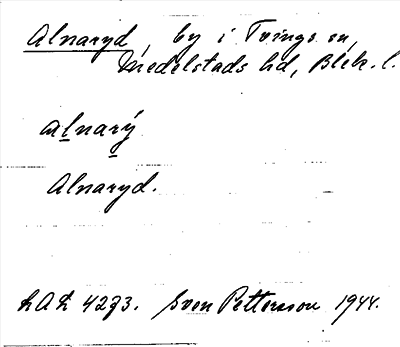 Alnaryd by i Tvings sn,
Medelstads hd, Blek. l.
alnarý
Alnaryd.
LAL 4273. Sven Pettersson 1944.